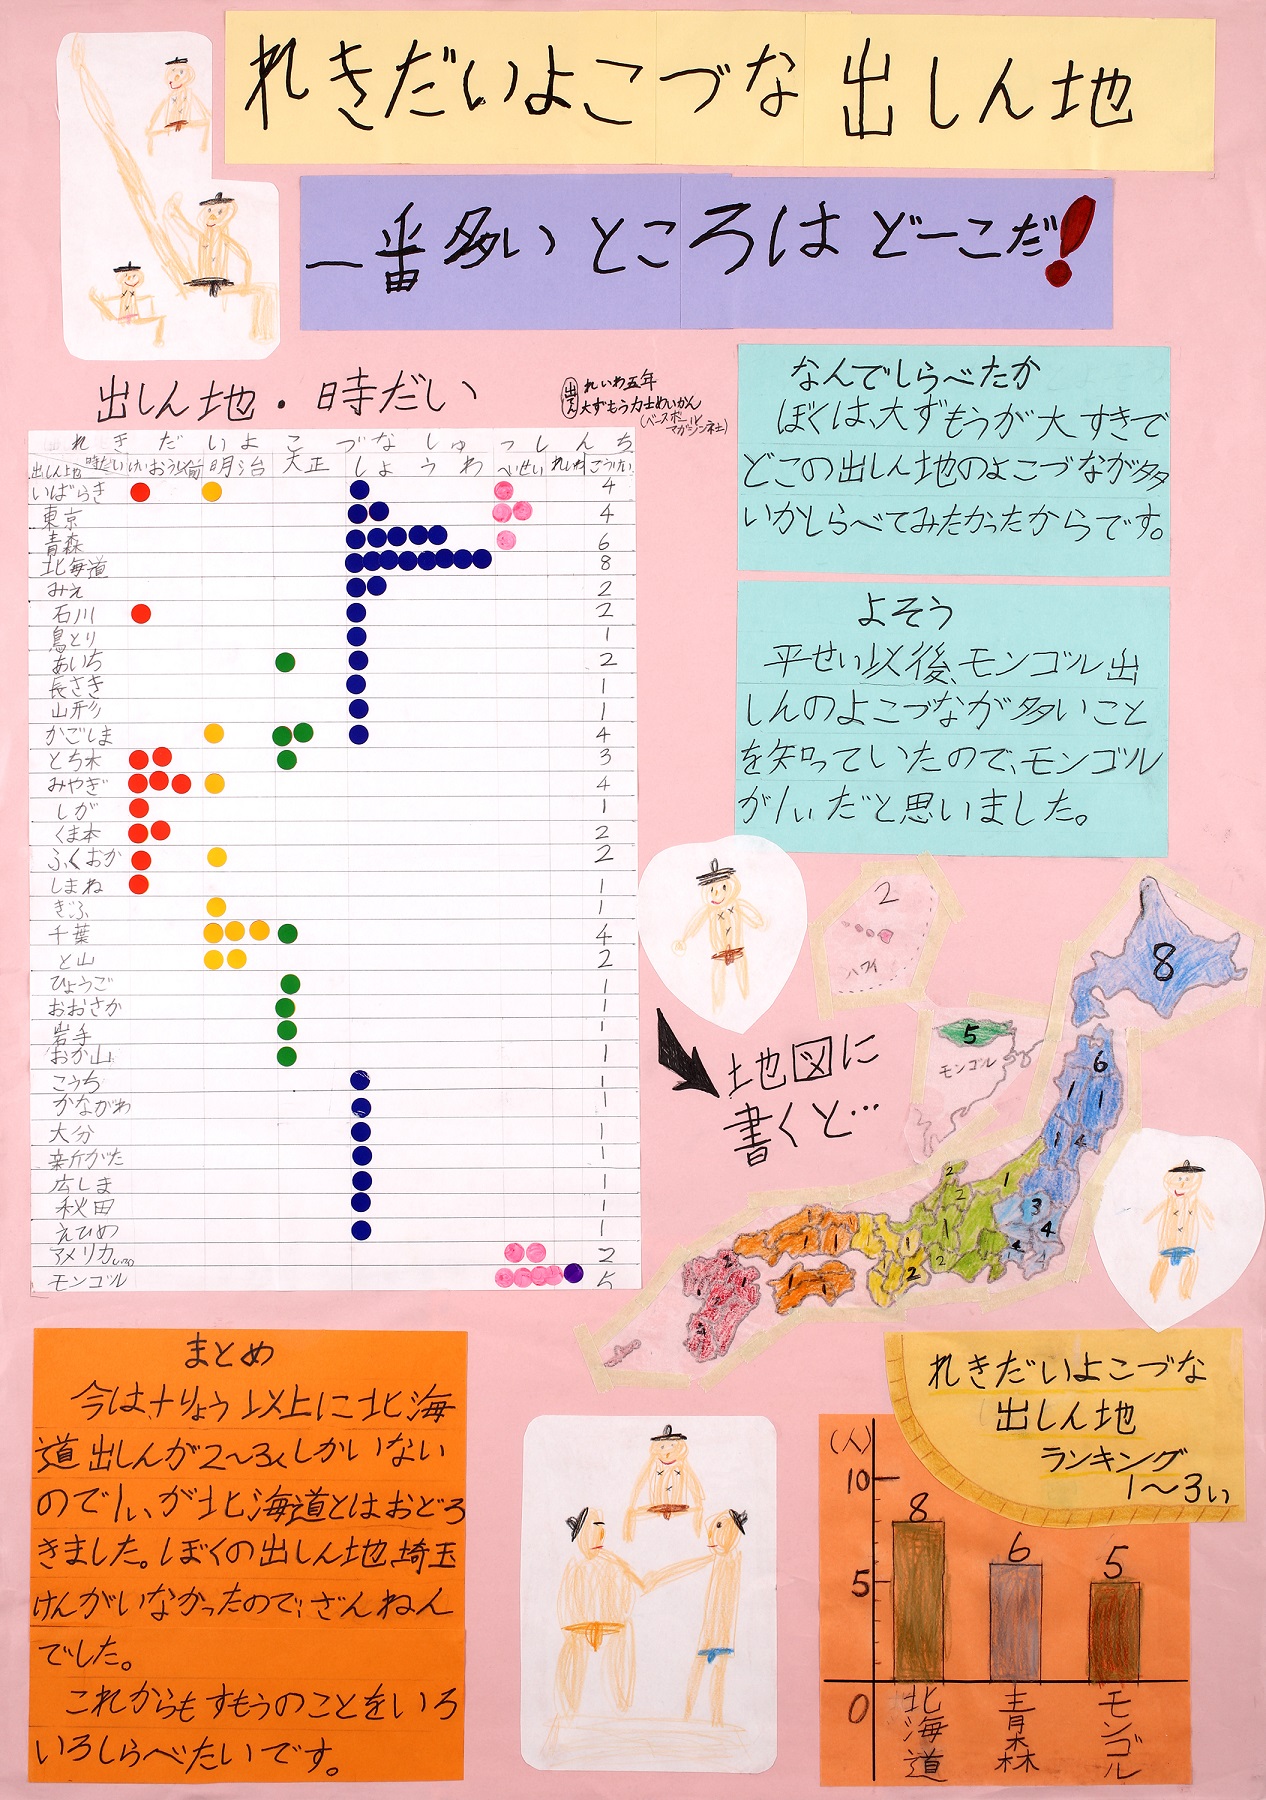 れきだいよこづな出しん地
一番多いところはどーこだ!
出しん地・時だい
出てん れいわ五年
大ずもう力士めいかん
(ベースボールマガジン社)
れきだいよこづなしゅっしんち
出しん地 時だい けいおう以前 明治 大正 しょうわ へいせい れいわ ごうけい
いばらき 4
東京 4
青森 6
北海道 8
みえ 2
石川 2
鳥とり 1
あいち 2
長さき 1
山形 1
かごしま 4
とち木 3
みやぎ 4
しが 1
くま本 2
ふくおか 2
しまね 1
ぎふ 1
千葉 4
と山 2
ひょうご 1
おおさか 1
岩手 1
おか山 1
こうち 1
かながわ 1
大分 1
新がた 1
広しま 1
秋田 1
えひめ 1
アメリカ 2
モンゴル 5
なんでしらべたか
ぼくは、大ずもうが大すきで
どこの出しん地のよこづなが多
いかしらべてみたかったからです。
よそう
平せい以後、モンゴル出
しんのよこづなが多いこと
を知っていたので、モンゴル
が1いだと思いました。
地図に
書くと…
2
ハワイ
5
モンゴル
8
6
1 1
1 4
3
4
まとめ
今は、十りょう以上に北海
道出しんが2〜3人しかいない
ので1いが北海道とはおどろ
きました。ぼくの出しん地、埼玉
けんがいなかったので、ざんねん
でした。
これからもすもうのことをいろ
いろしらべたいです。
れきだいよこづな
出しん地
ランキング
1〜3い
(人)
10
5
0
8
6
5
北海道
青森
モンゴル